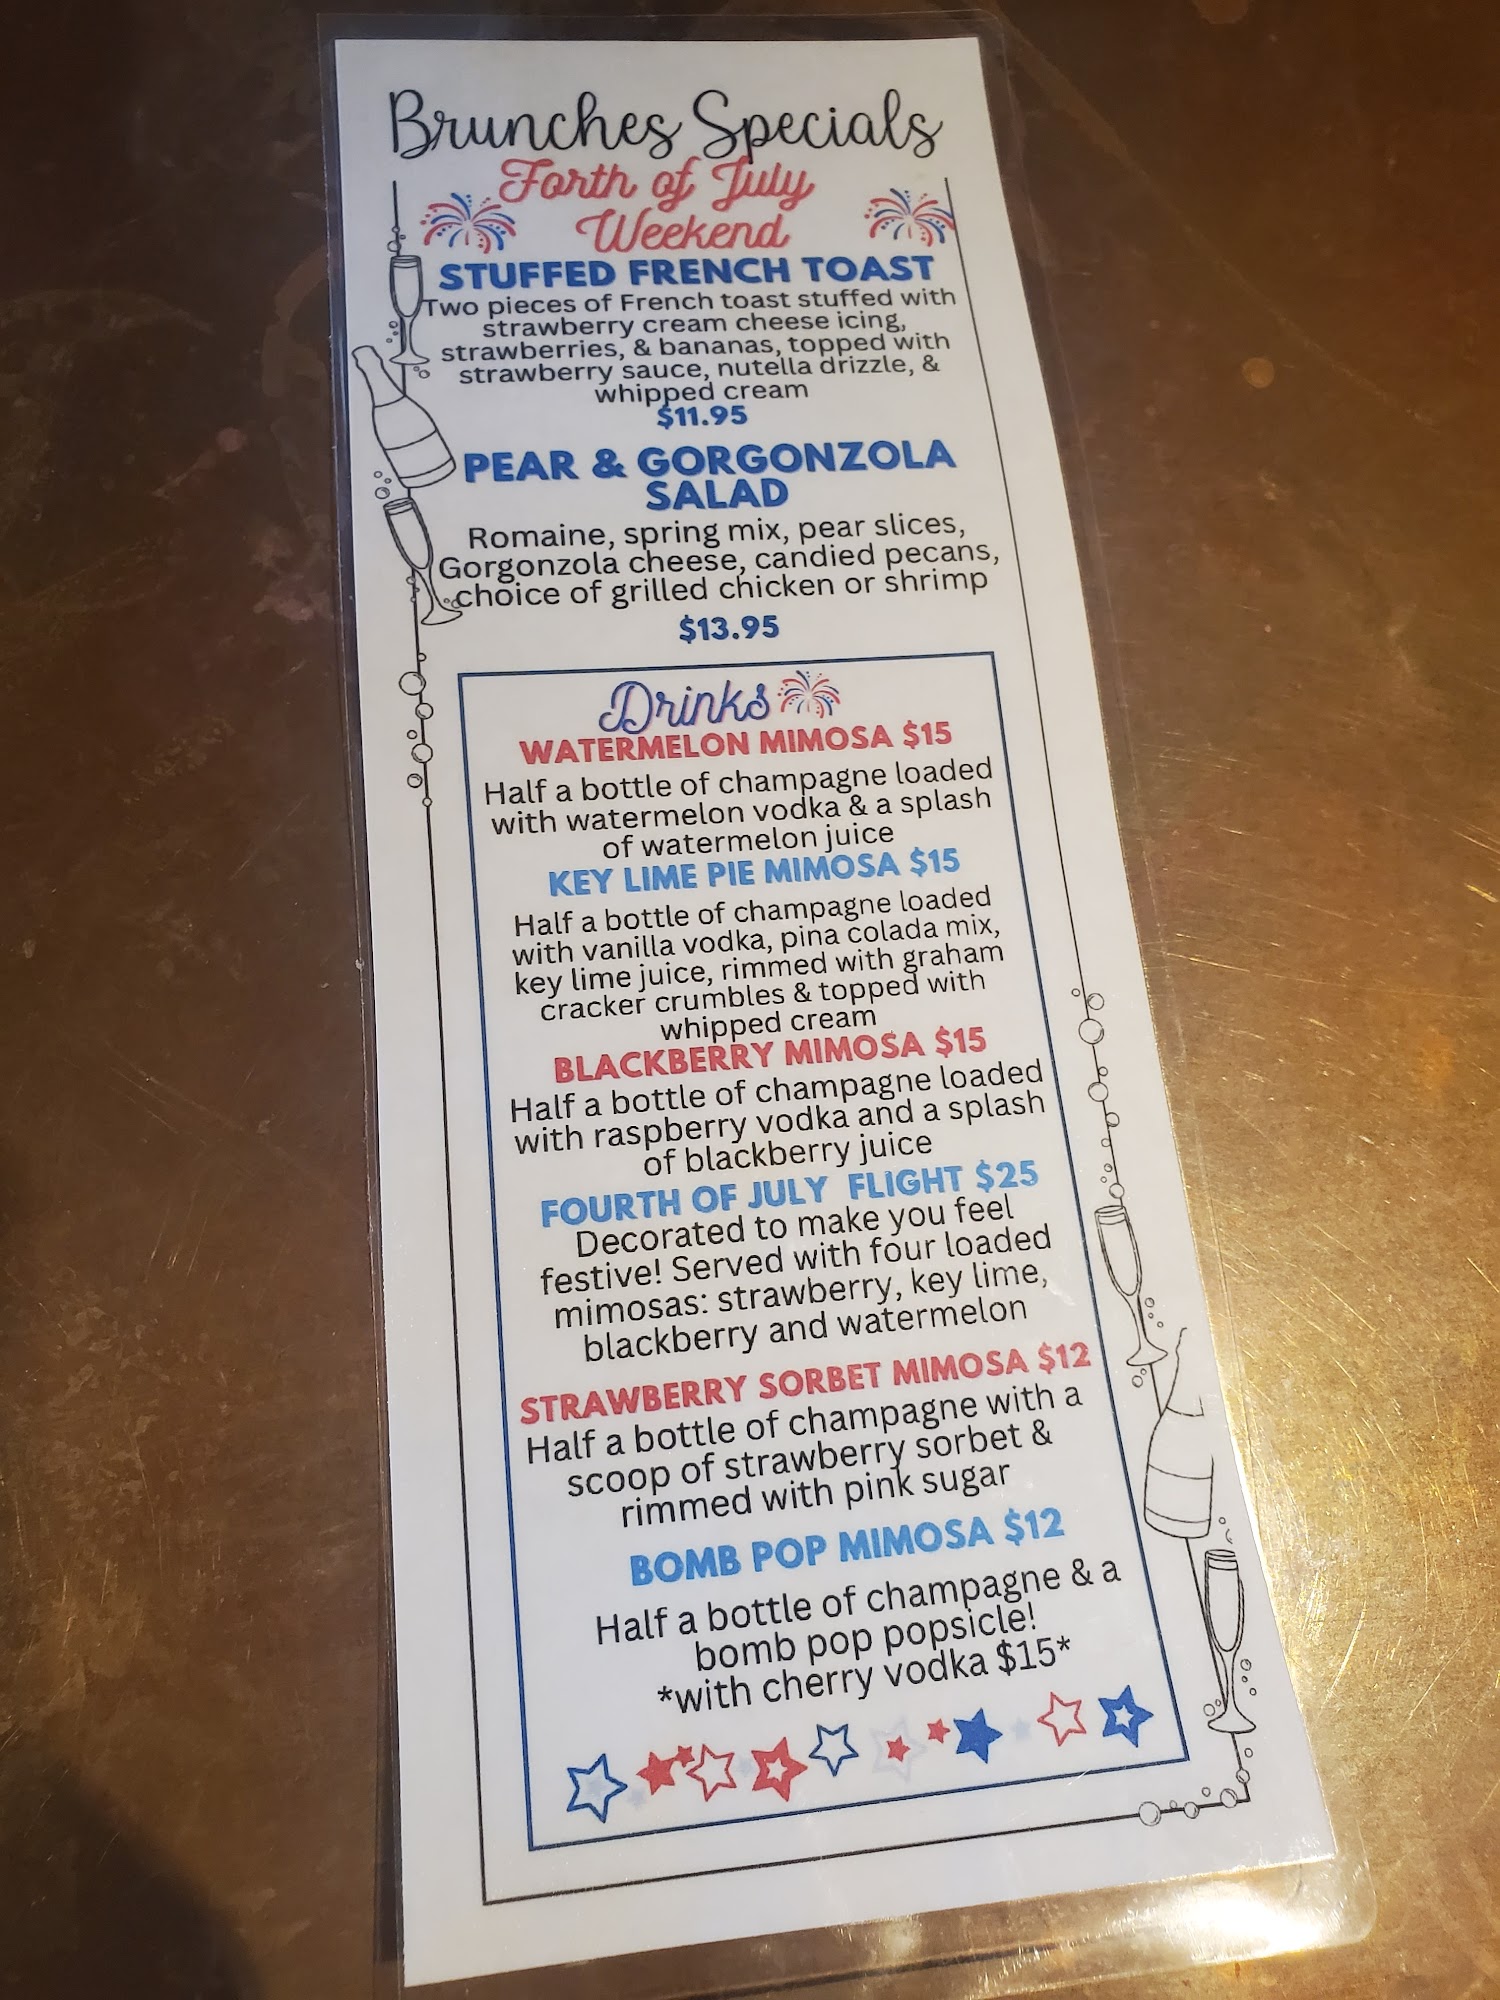 Brunches Specials
Forth of July
Weekend
STUFFED FRENCH TOAST
Two pieces of French toast stuffed with
strawberry cream cheese icing,
strawberries, & bananas, topped with
strawberry sauce, nutella drizzle, &
whipped cream
$11.95
PEAR & GORGONZOLA
SALAD
Romaine, spring mix, pear slices,
Gorgonzola cheese, candied pecans,
choice of grilled chicken or shrimp
$13.95
Drinks
WATERMELON MIMOSA $15
Half a bottle of champagne loaded
with watermelon vodka & a splash
of watermelon juice
KEY LIME PIE MIMOSA $15
Half a bottle of champagne loaded
with vanilla vodka, pina colada mix,
key lime juice, rimmed with graham
cracker crumbles & topped with
whipped cream
BLACKBERRY MIMOSA $15
Half a bottle of champagne loaded
with raspberry vodka and a splash
of blackberry juice
FOURTH OF JULY FLIGHT $25
Decorated to make you feel
festive! Served with four loaded
mimosas: strawberry, key lime,
blackberry and watermelon
STRAWBERRY SORBET MIMOSA $12
Half a bottle of champagne with a
scoop of strawberry sorbet &
rimmed with pink sugar
BOMB POP MIMOSA $12
Half a bottle of champagne & a
bomb pop popsicle!
*with cherry vodka $15*